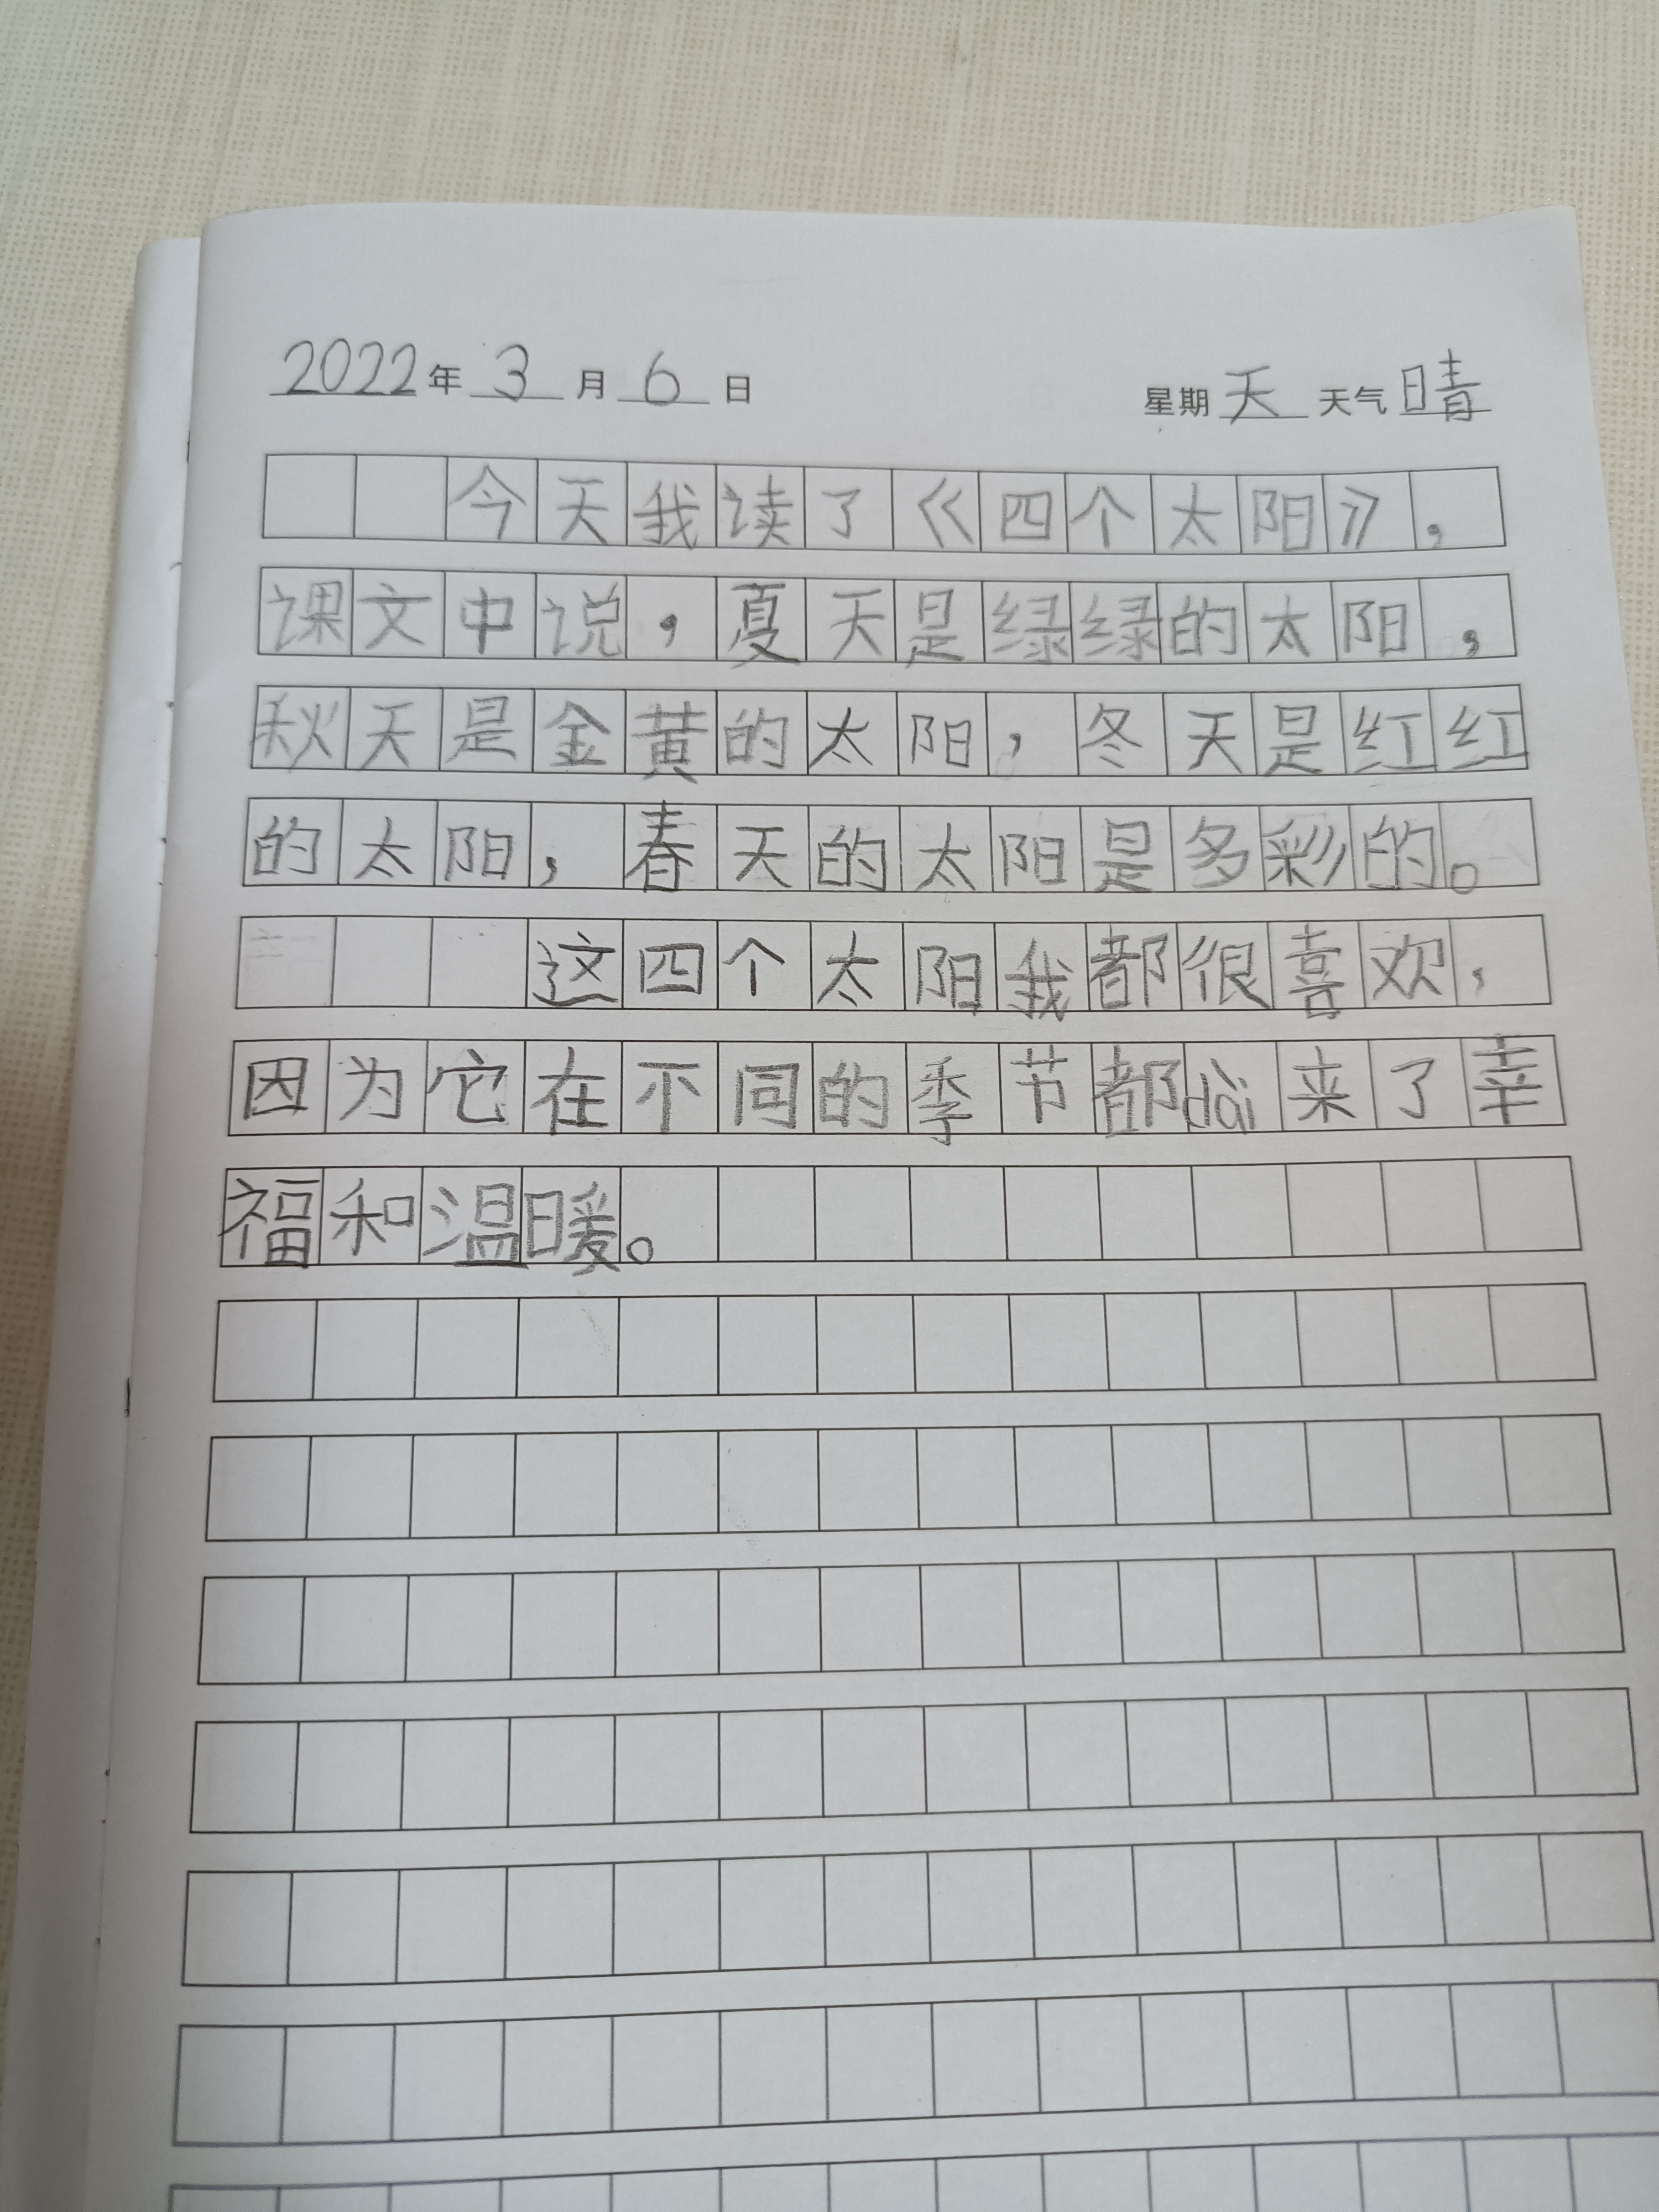 2022年3月6日 星期天 天气晴
今天我读了《四个太阳》，
课文中说，夏天是绿绿的太阳，
秋天是金黄的太阳，冬天是红红
的太阳，春天的太阳是多彩的。
这四个太阳我都很喜欢，
因为它在不同的季节都dài来了幸
福和温暖。